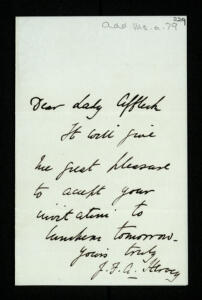 229
Add. Ms. a. 79
Dear Lady Affleck
It will give
me great pleasure
to accept your
invitation to
luncheon tomorrow.
Yours truly
J. F. A. Hervey